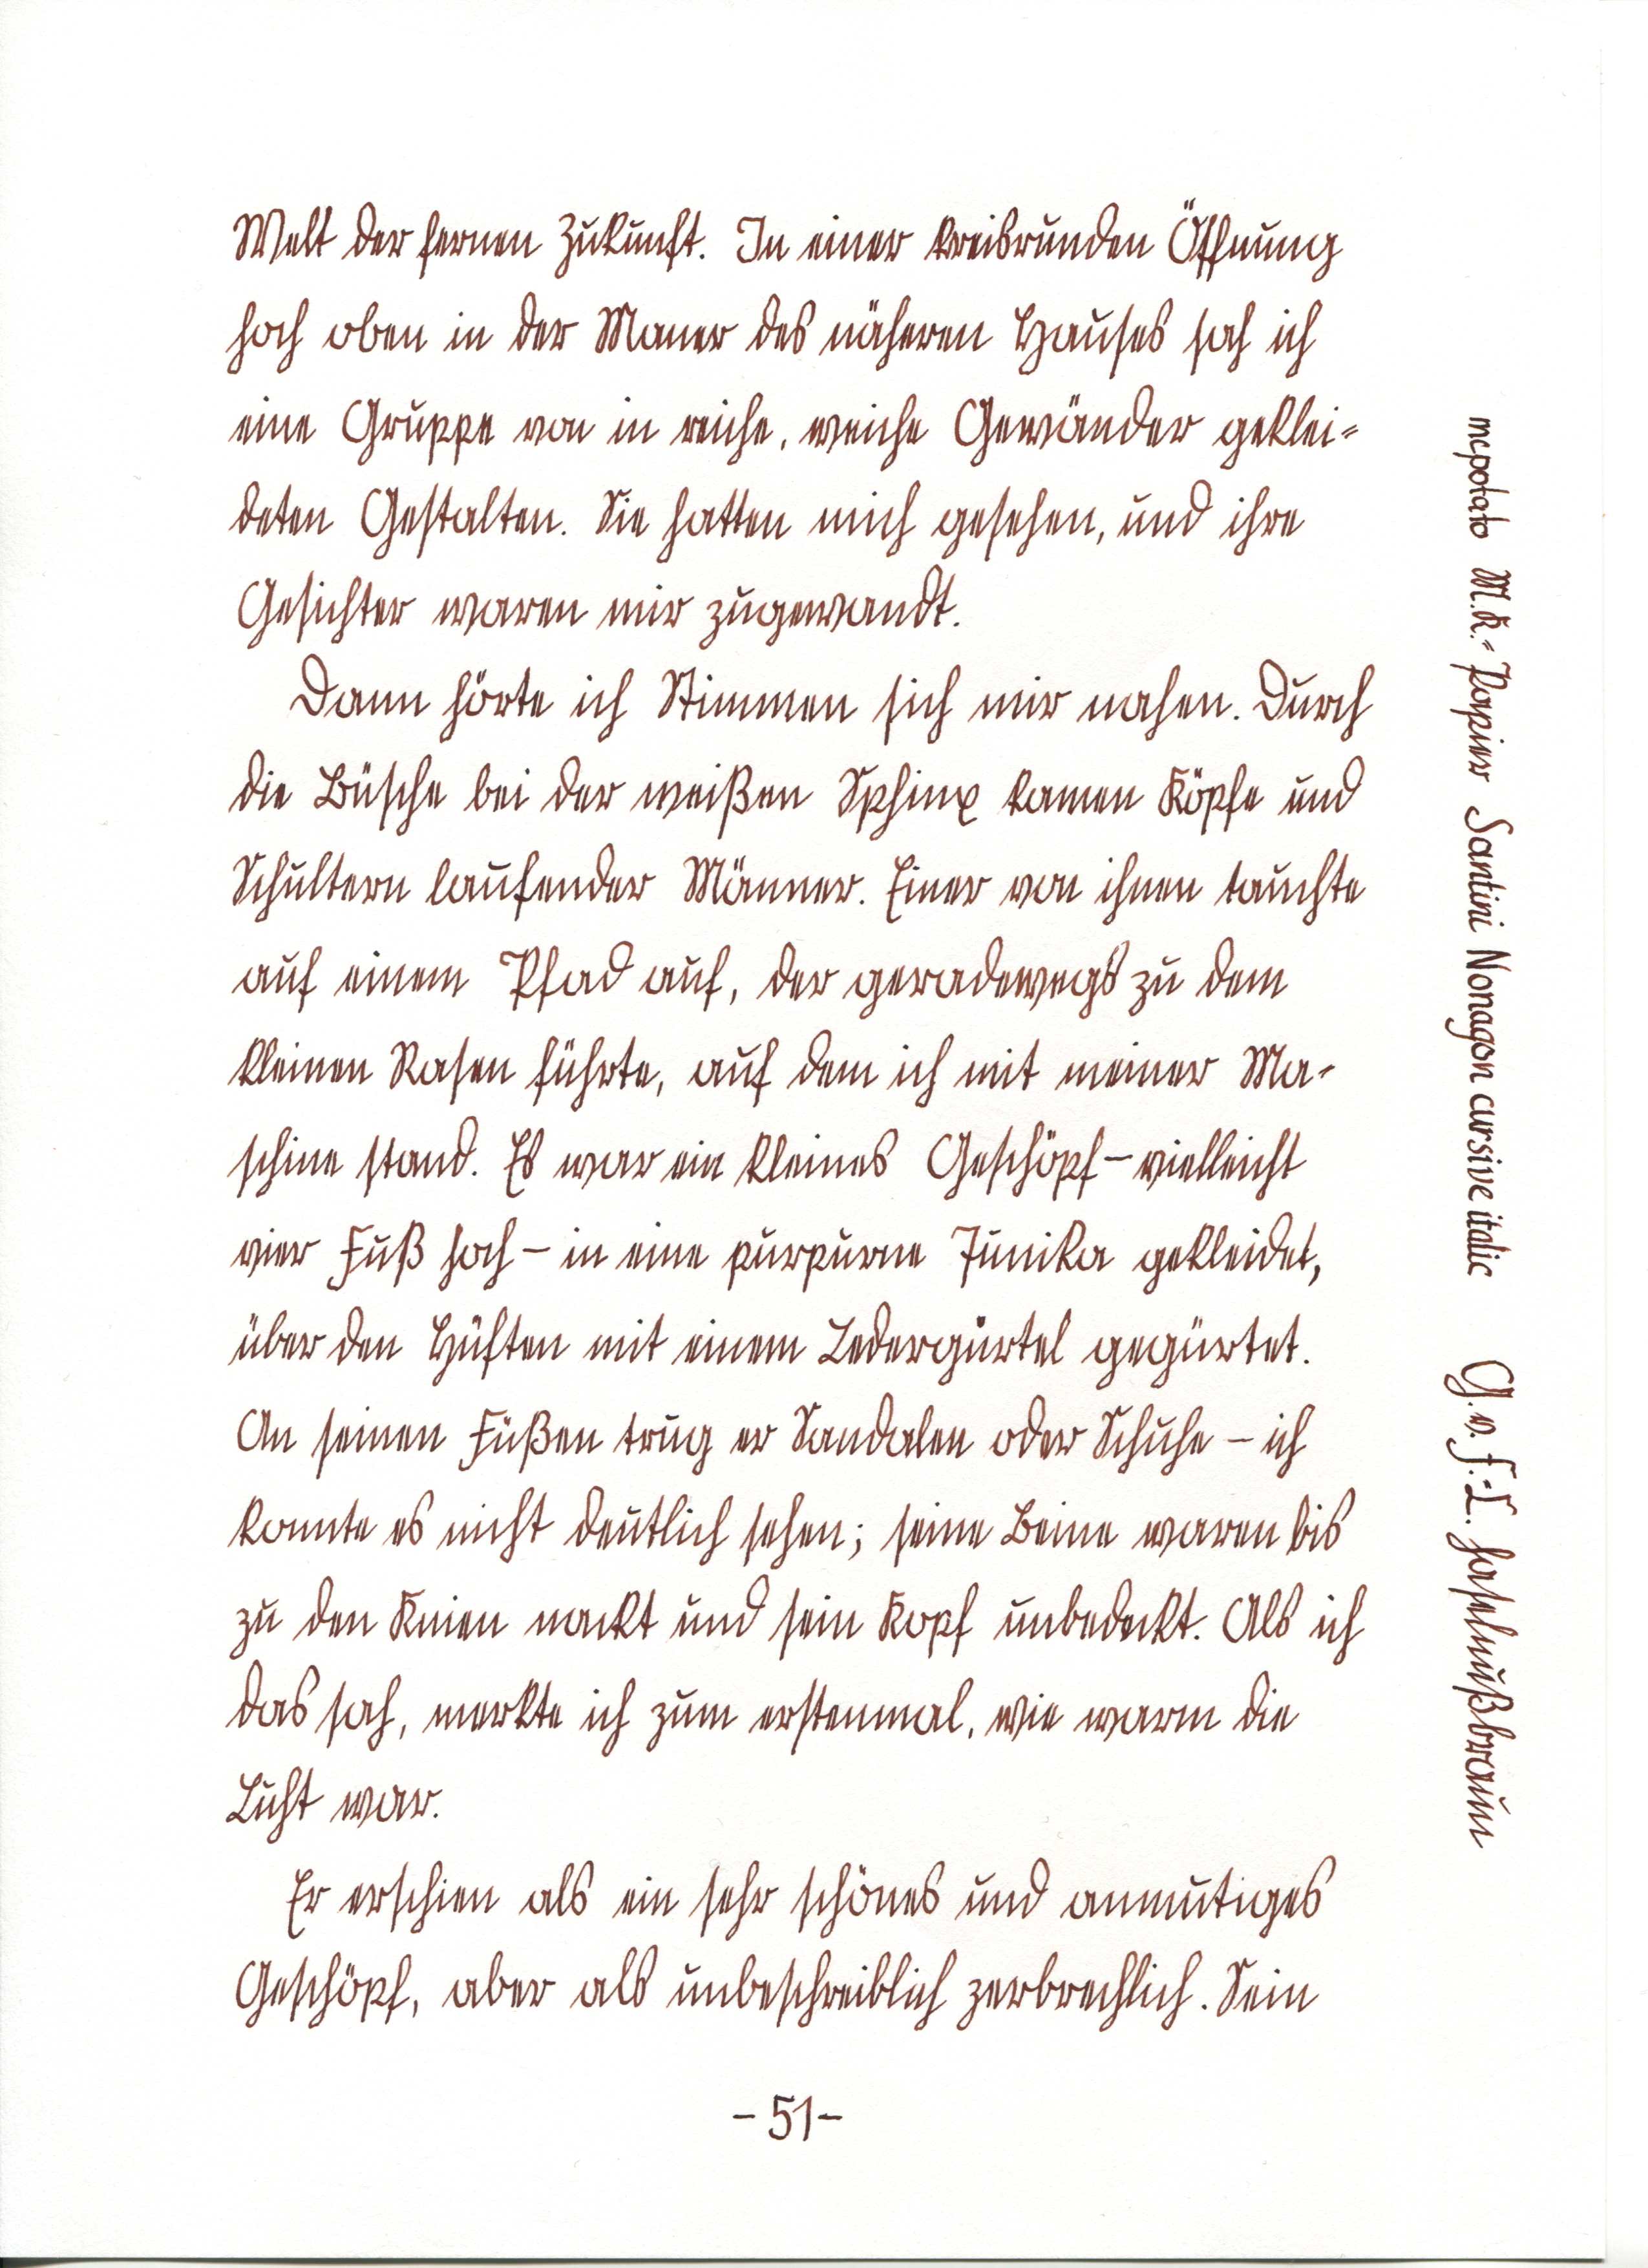 Welt der fernen Zukunft. In einer kreisrunden Öffnung
hoch oben in der Mauer des näheren Hauses sah ich
eine Gruppe von in reiche, weiche Gewänder geklei-
deten Gestalten. Sie hatten mich gesehen, und ihre
Gesichter waren mir zugewandt.
Dann hörte ich Stimmen sich mir nahen. Durch
die Büsche bei der weißen Sphinx kamen Köpfe und
Schultern laufender Männer. Einer von ihnen tauchte
auf einem Pfad auf, der geradewegs zu dem
kleinen Rasen führte, auf dem ich mit meiner Ma-
schine stand. Es war ein kleines Geschöpf – vielleicht
vier Fuß hoch – in eine purpurne Tunika gekleidet,
über den Hüften mit einem Ledergürtel gegürtet.
An seinen Füßen trug er Sandalen oder Schuhe – ich
konnte es nicht deutlich sehen; seine Beine waren bis
zu den Knien nackt und sein Kopf unbedeckt. Als ich
das sah, merkte ich zum erstenmal, wie warm die
Luft war.
Er erschien als ein sehr schönes und anmutiges
Geschöpf, aber als unbeschreiblich zerbrechlich. Sein
- 51 -
mcpotato M.K.-Papier Santini Nonagon cursive italic G.v.F.-L. haselnußbraun